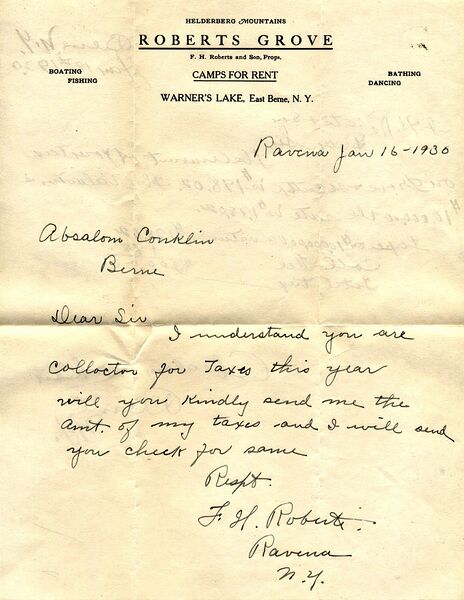 HELDERBERG MOUNTAINS
ROBERTS GROVE
F. H. Roberts and Son, Props.
BOATING
FISHING
CAMPS FOR RENT
BATHING
DANCING
WARNER'S LAKE, East Berne, N. Y.
Ravena Jan 16-1930
Absalom Conklin
Berne
Dear Sir
I understand you are
Colloctor for Taxes this year
will you kindly send me the
amt. of my taxes and I will send
you check for same
Respt.
F. H. Roberts.
Ravena
N.Y.